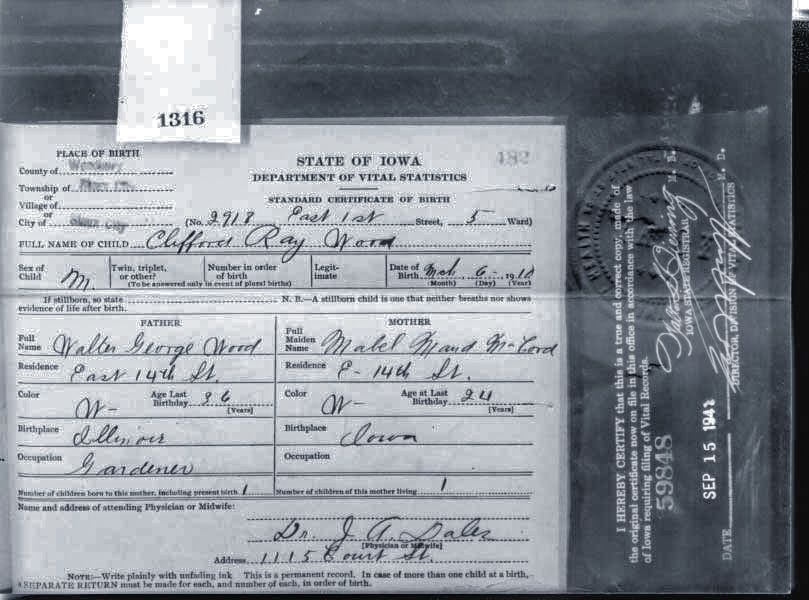 1316
PLACE OF BIRTH
County of Woodbury
Township of
or
Village of
or
City of Sioux City
STATE OF IOWA
DEPARTMENT OF VITAL STATISTICS
STANDARD CERTIFICATE OF BIRTH
482
(No. 2918 East 1st Street, 5 Ward)
FULL NAME OF CHILD Clifford Ray Wood
Sex of Child M. Twin, triplet, or other? Number in order of birth Legit-imate Date of Birth Mch 6- 1910
(To be answered only in event of plural births) (Month) (Day) (Year)
If stillborn, so state N. B.—A stillborn child is one that neither breathes nor shows
evidence of life after birth.
FATHER
Full Name Walter George Wood
Residence East 14th St.
Color W- Age Last Birthday 36
[Years]
Birthplace Illinois
Occupation Gardener
Number of children born to this mother, including present birth 1
MOTHER
Full Maiden Name Mabel Maud McCord
Residence E- 14th St.
Color W- Age at Last Birthday 24
[Years]
Birthplace Iowa
Occupation
Number of children of this mother living 1
Name and address of attending Physician or Midwife:
Dr. J. A. Dales
[Physician or Midwife]
Address 1115 Court St.
NOTE:—Write plainly with unfading ink This is a permanent record. In case of more than one child at a birth,
a SEPARATE RETURN must be made for each, and number of each, in order of birth.
I HEREBY CERTIFY that this is a true and correct copy, made of
the original certificate now on file in this office in accordance with the law
of Iowa requiring filing of Vital Records.
59848
IOWA STATE REGISTRAR
M. D.
DIRECTOR, DIVISION OF VITAL STATISTICS
DATE SEP 15 194